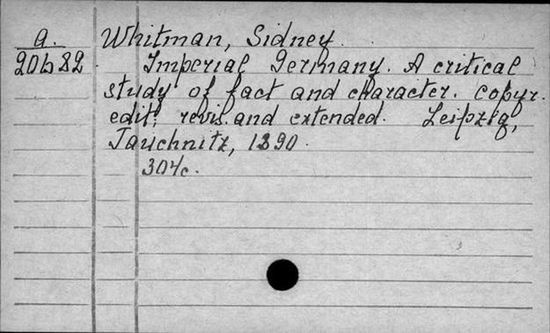 a. Whitman, Sidney.
20b82 Imperial Germany. A critical
study of fact and character. Copyr.
edit. revis. and extended. Leipzig,
Tauchnitz, 1890.
304c.